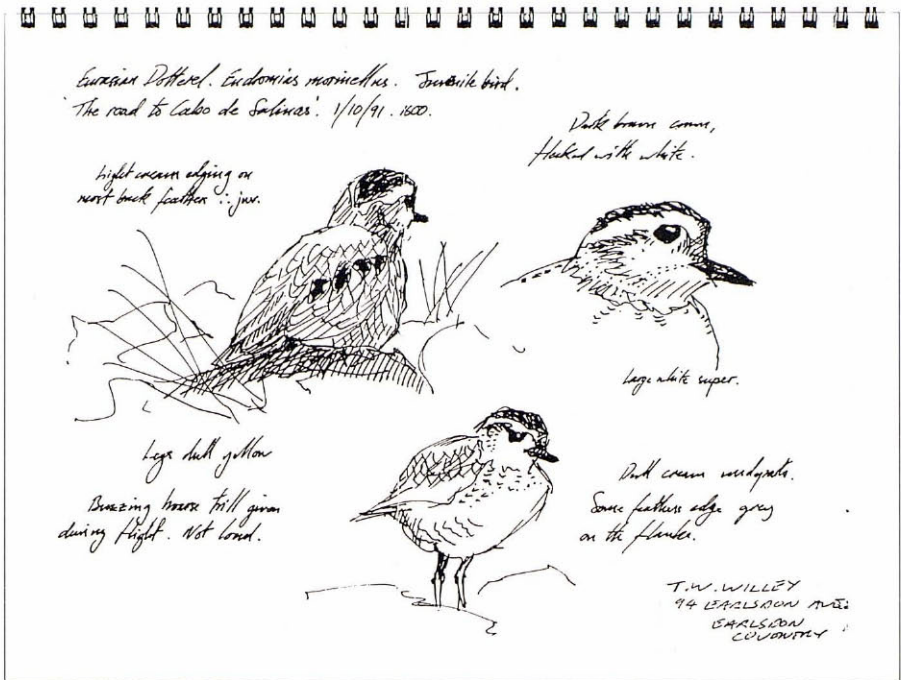 Eurasian Dotterel. Eudromias morinellus. Juvenile bird.
'The road to Cabo de Salinas'. 1/10/91. 1600.
Dark brown crown,
flecked with white.
Light cream edging on
most back feathers ∴ juv.
Large white super.
Legs dull yellow
Buzzing hoarse trill given
during flight. Not loud.
Dull cream underparts.
Some feathers edge grey
on the flanks.
T.W. WILLEY
94 EARLSDON AVE:
EARLSDON
COVENTRY